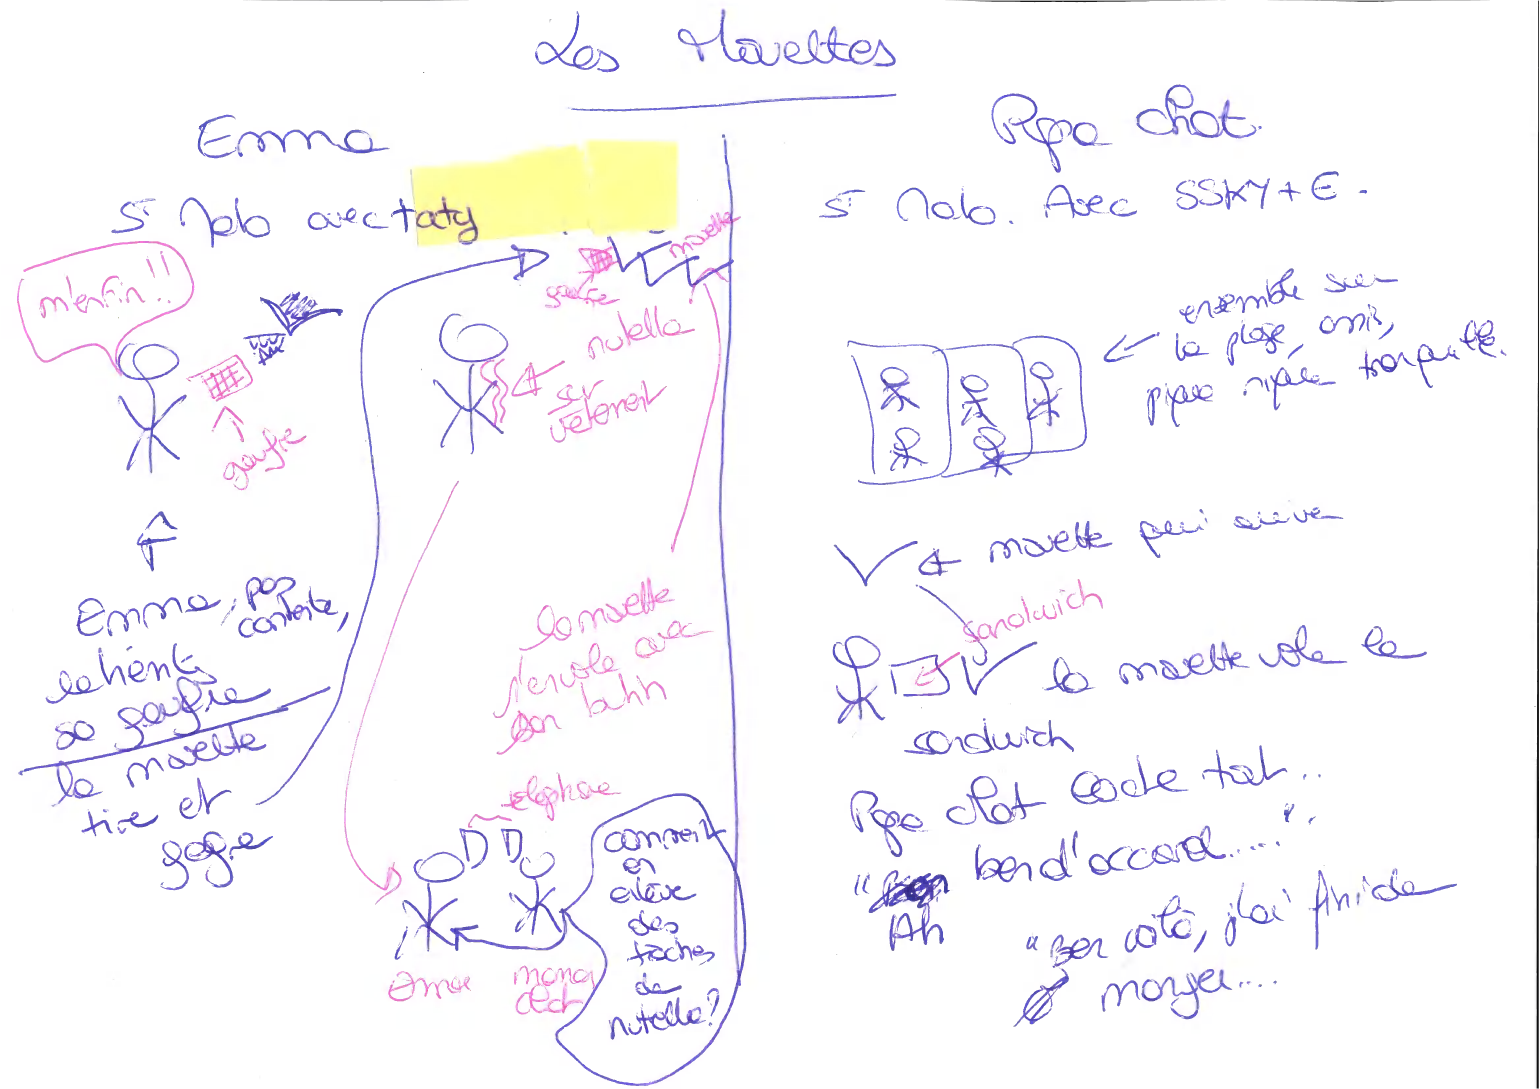 Les Mouettes
Emma
St Malo avec taty
m'enfin!!
gaufre
Emma, pas
contente,
retient
sa gaufre
la mouette
tire et
gagne
gaufre
mouette
nutella
sur
vêtement
la mouette
s'envole avec
son butin
téléphone
Emma
maman
comment
on
enlève
des
tâches
de
nutella?
Papa chat.
St Malo. Avec SSKY+E.
ensemble sur
la plage, assis,
pique nique tranquille.
mouette qui arrive
sandwich
la mouette vole le
sandwich
Papa chat
"Ah ben d'accord....".
"Ben voilà, j'ai fini de
manger....